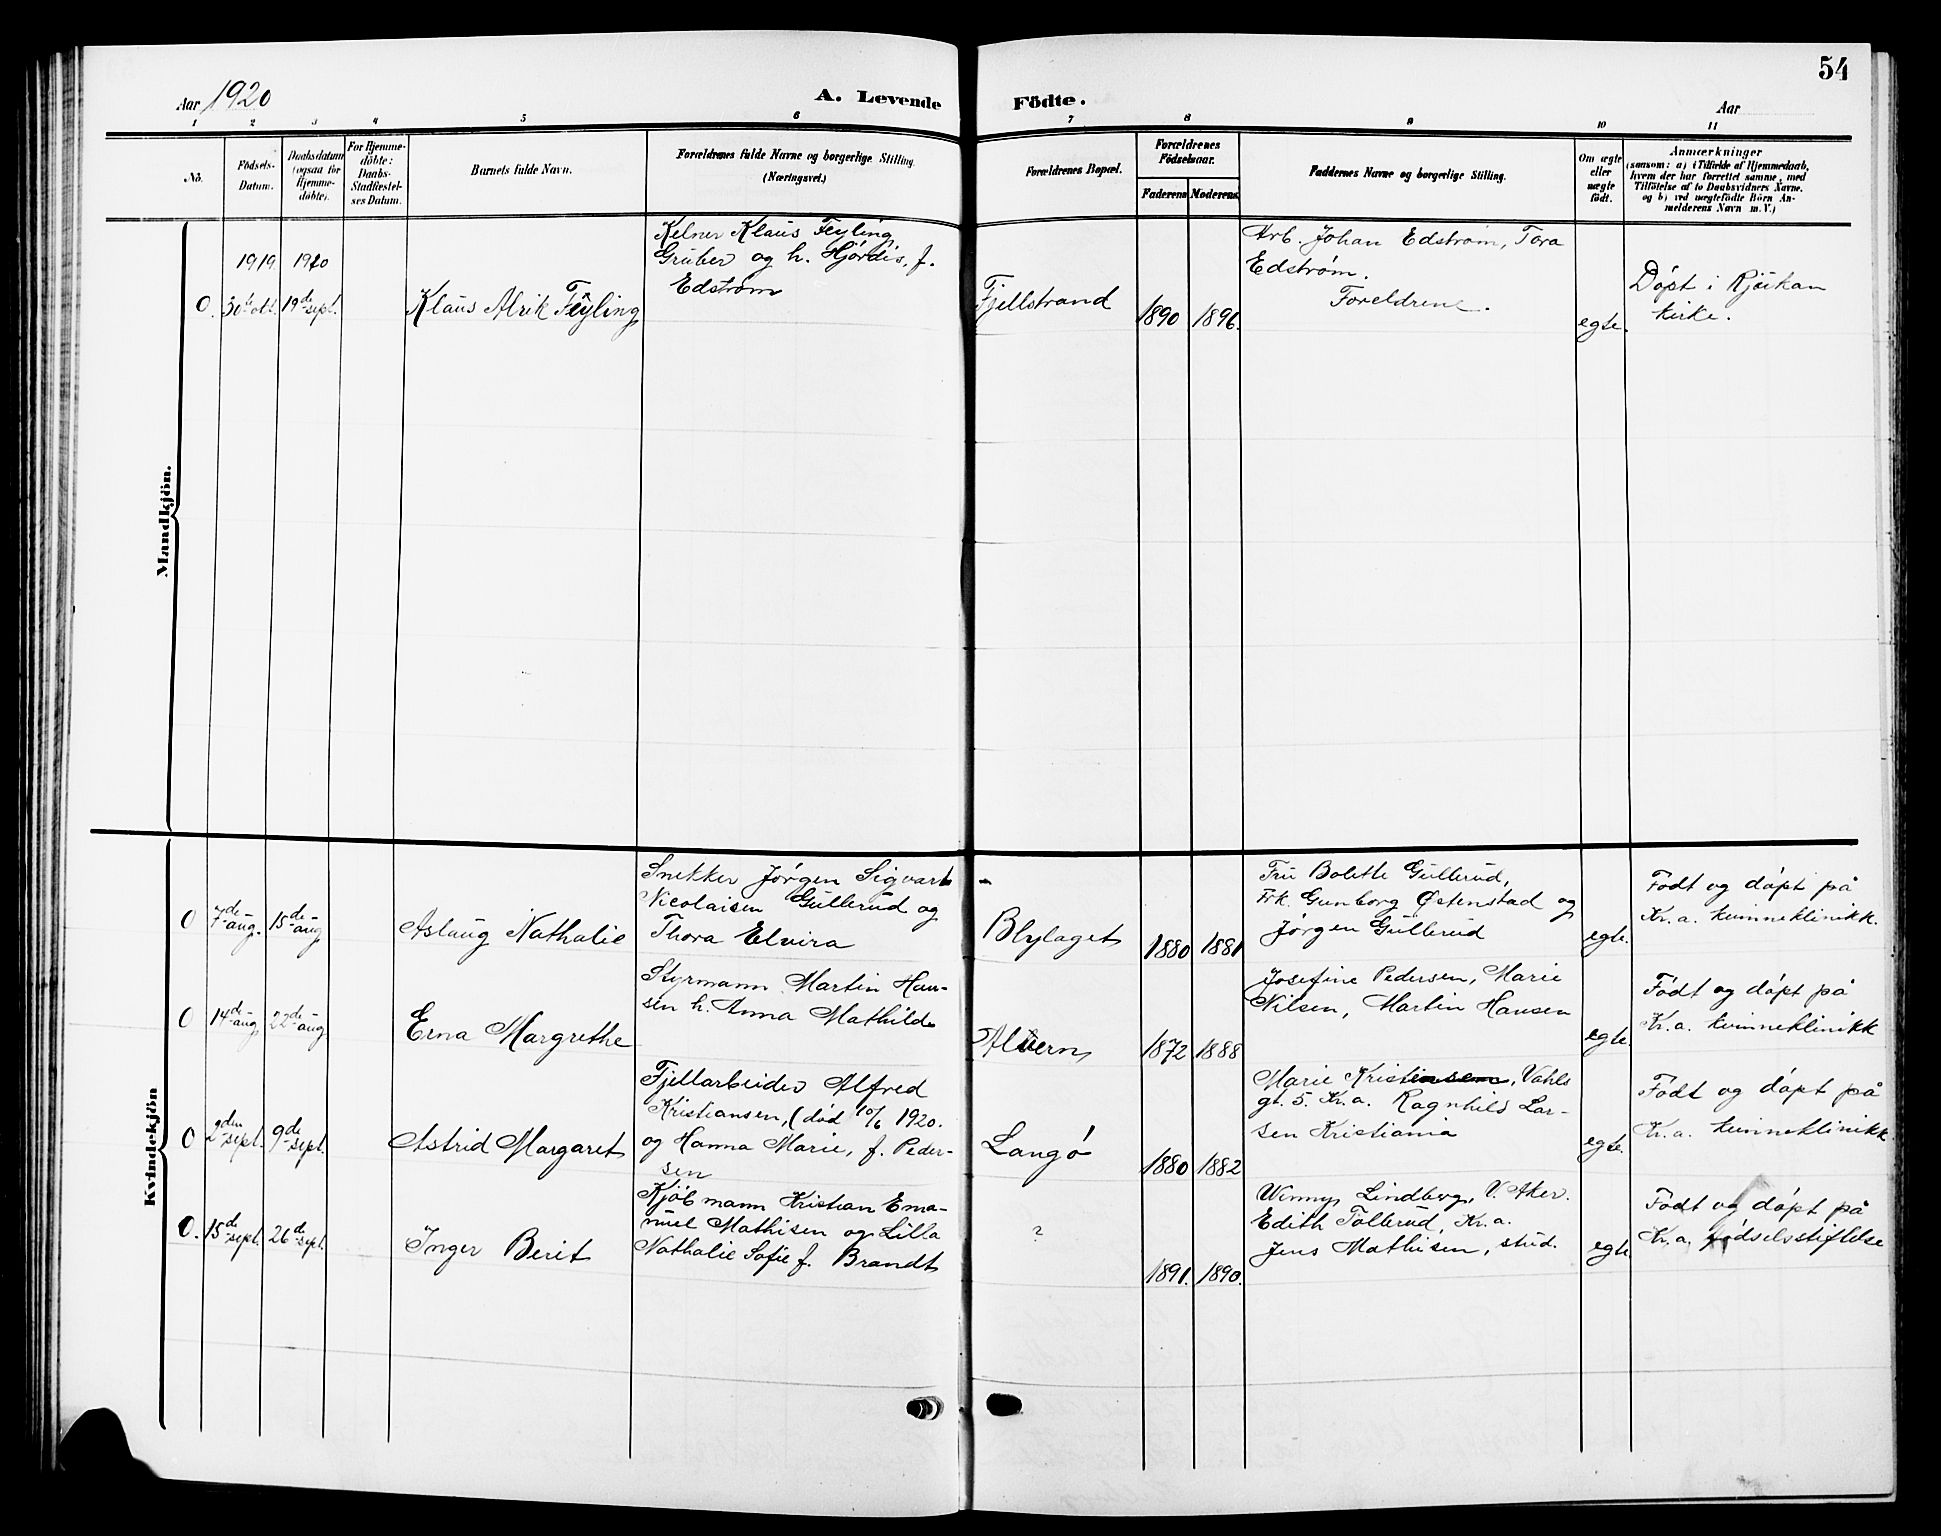 54
Aar 1920
A. Levende Födte.
Aar
1 2 3 4 5 6 7 8 9 10 11
No.
Födsels-
Datum.
Daabsdatum
(ogsaa for
Hjemme-
döbte).
For Hjemme-
döbte:
Daabs-
Stadfæstel-
ses Datum.
Barnets fulde Navn.
Forældrenes fulde Navne og borgerlige Stilling.
(Næringsvei.)
Forældrenes Bopæl.
Forældrenes
Födselsaar.
Faderens Moderens
Faddernes Navne og borgerlige Stilling.
Om ægte
eller
uægte
födt.
Anmærkninger
(saasom: a) i Tilfælde af Hjemmedaab,
hvem der har forrettet samme, med
Tilföielse af to Daabsvidners Navne.
og b) ved uægtefödte Börn An-
melderens Navn m. V.)
Mandkjön.
1919 1920
0. 30te okt. 19de sept.
Klaus Alrik Feyling
Kelner Klaus Feyling
Gruber og h. Hjórdis, f.
Edstrøm
Fjellstrand
1890 1896.
Arb. Johan Edstrøm, Tora
Edstrøm.
Foreldrene.
egte.
Dópt i Rjukan
kirke.
Kvindekjön
0 7de aug. 15de aug
Aslaug Nathalie
Snekker Jórgen Sigvart
Nicolaisen Gullerud og
Thora Elvira
Blylaget
1880 1881
Fru Bolette Gullerud,
Frk. Gunborg Østenstad og
Jørgen Gullerud
egte.
Fódt og dópt på
Kr.a. kvinneklinikk.
0 14de aug. 22de aug.
Erna Margrethe
Styrmann Martin Han-
sen h. Anna Mathilde
Alvern
1872 1888
Josefine Pedersen, Marie
Nilsen, Martin Hansen
egte
Fódt og dópt på
Kr.a. kvinneklinikk
0 2den sept. 9de sept.
Astrid Margaret
Fjellarbeider Alfred
Kristiansen, (død 10/6 1920.
og Hanna Marie, f. Peder-
sen
Langó
1880 1882
Marie Kristensen, Vahls
gt. 5. Kr.a. Ragnhild Lar-
sen Kristiania
egte.
Fódt og dópt på
Kr.a. kvinneklinikk.
0. 15de sept. 26de sept.
Inger Berit
Kjóbmann Kristian Ema-
nuel Mathisen og Lilla
Nathalie Sofie f. Brandt
?
1891. 1890.
Winny Lindberg, V. Aker.
Edith Tollerud, Kr.a.
Jens Mathisen, stud.
egte
Fódt og dópt på
Kr.a. fódselsstiftelse